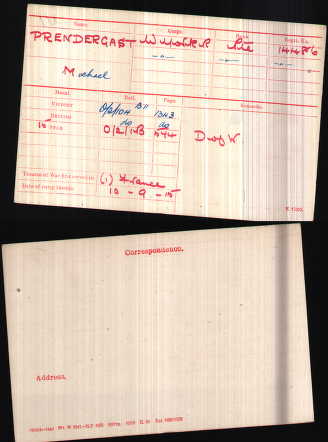 Name. Corps. Rank. Regtl. No.
PRENDERGAST W. York. R. Pte 14486
Michael
Medal. Roll. Page. Remarks.
VICTORY O/2/10H B11 1343
BRITISH do do
15 STAR O/2/1B 544 D. of W.
Theatre of War first served in (1) France
Date of entry therein 10 - 9 - 15
K 1380.
Correspondence.
Address.